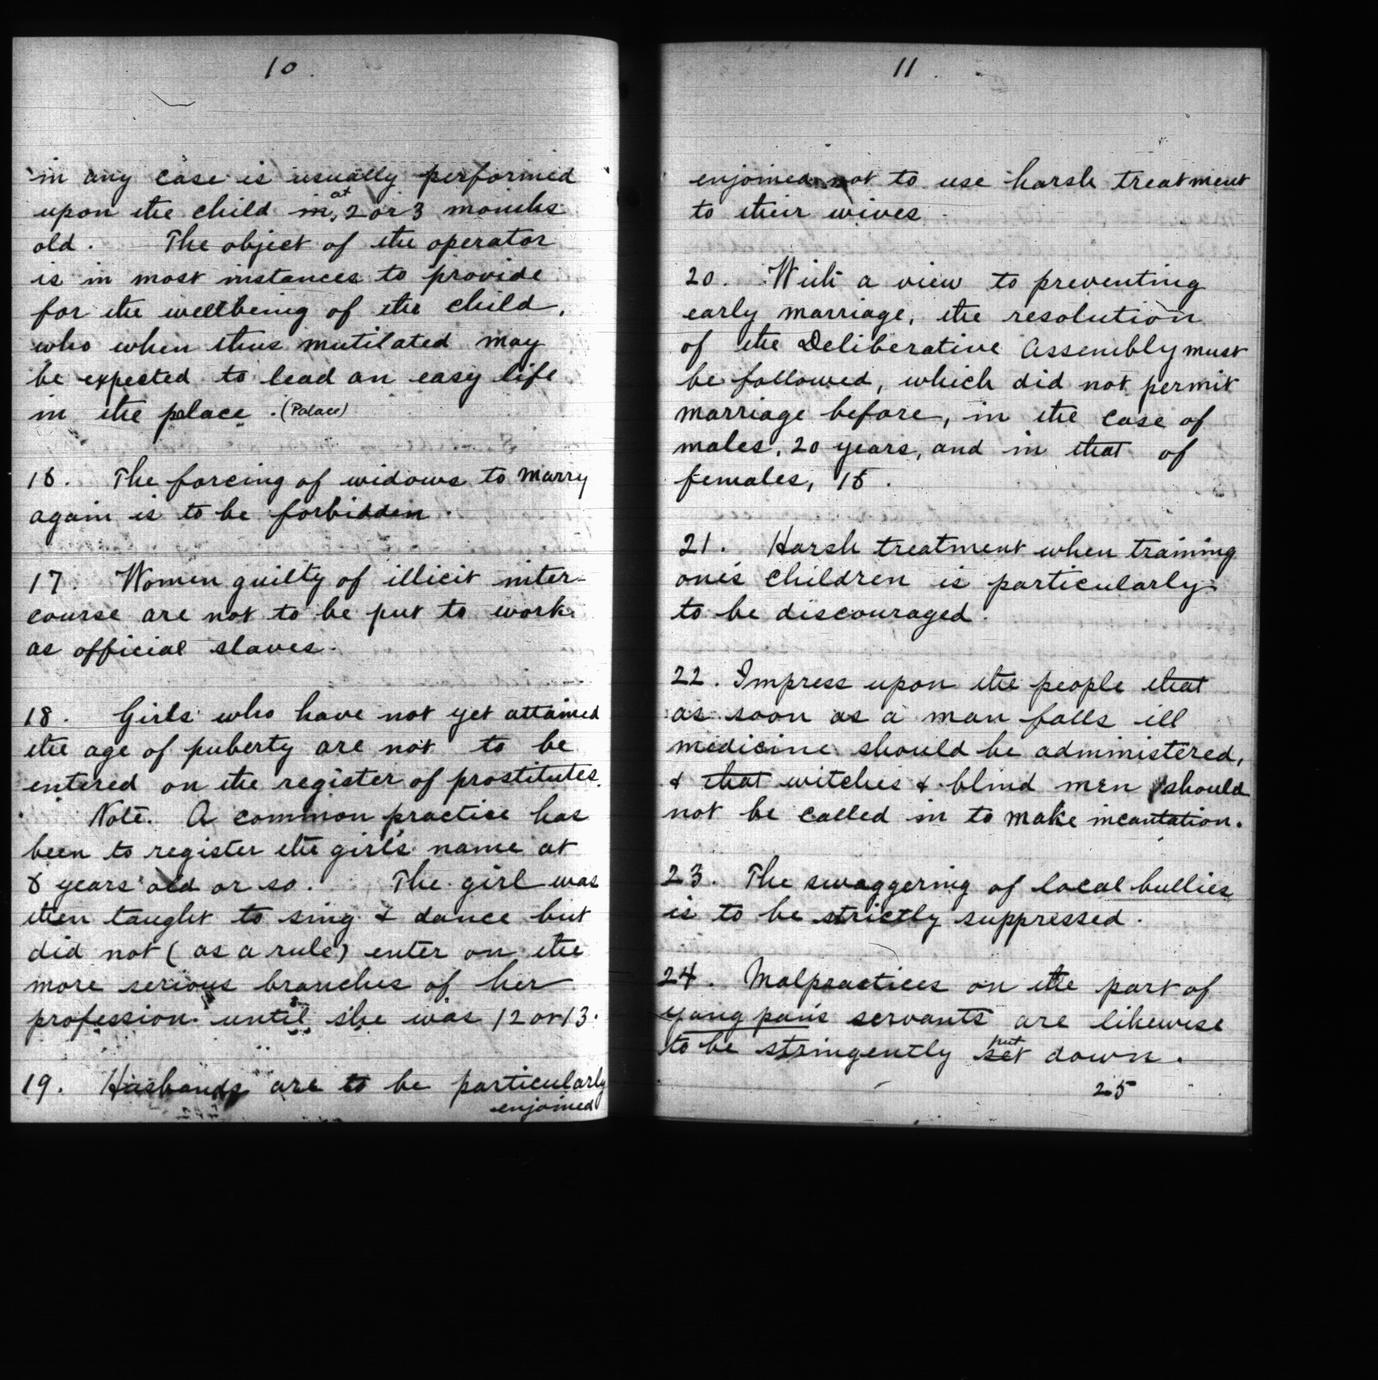 10.
in any case is usually performed
upon the child in at 2 or 3 months
old. The object of the operator
is in most instances to provide
for the wellbeing of the child,
who when thus mutilated may
be expected to lead an easy life
in the place. (Palace)
16. The forcing of widows to marry
again is to be forbidden.
17. Women guilty of illicit inter-
course are not to be put to work
as official slaves.
18. Girls who have not yet attained
the age of puberty are not to be
entered on the register of prostitutes.
Note. A common practise has
been to register the girl's name at
8 years old or so. The girl was
then taught to sing & dance but
did not (as a rule) enter on the
more serious branches of her
profession until she was 12 or 13.
19. Husbands are to be particularly
enjoined
11.
enjoined not to use harsh treatment
to their wives.
20. With a view to preventing
early marriage, the resolution
of the Deliberative Assembly must
be followed, which did not permit
marriage before, in the case of
males, 20 years, and in that of
females, 16.
21. Harsh treatment when training
one's children is particularly
to be discouraged.
22. Impress upon the people that
as soon as a man falls ill
medicine should be administered,
& that witches & blind men should
not be called in to make incantation.
23. The swaggering of local bullies
is to be strictly suppressed.
24. Malpractices on the part of
yang pan's servants are likewise
to be stringently set put down.
25